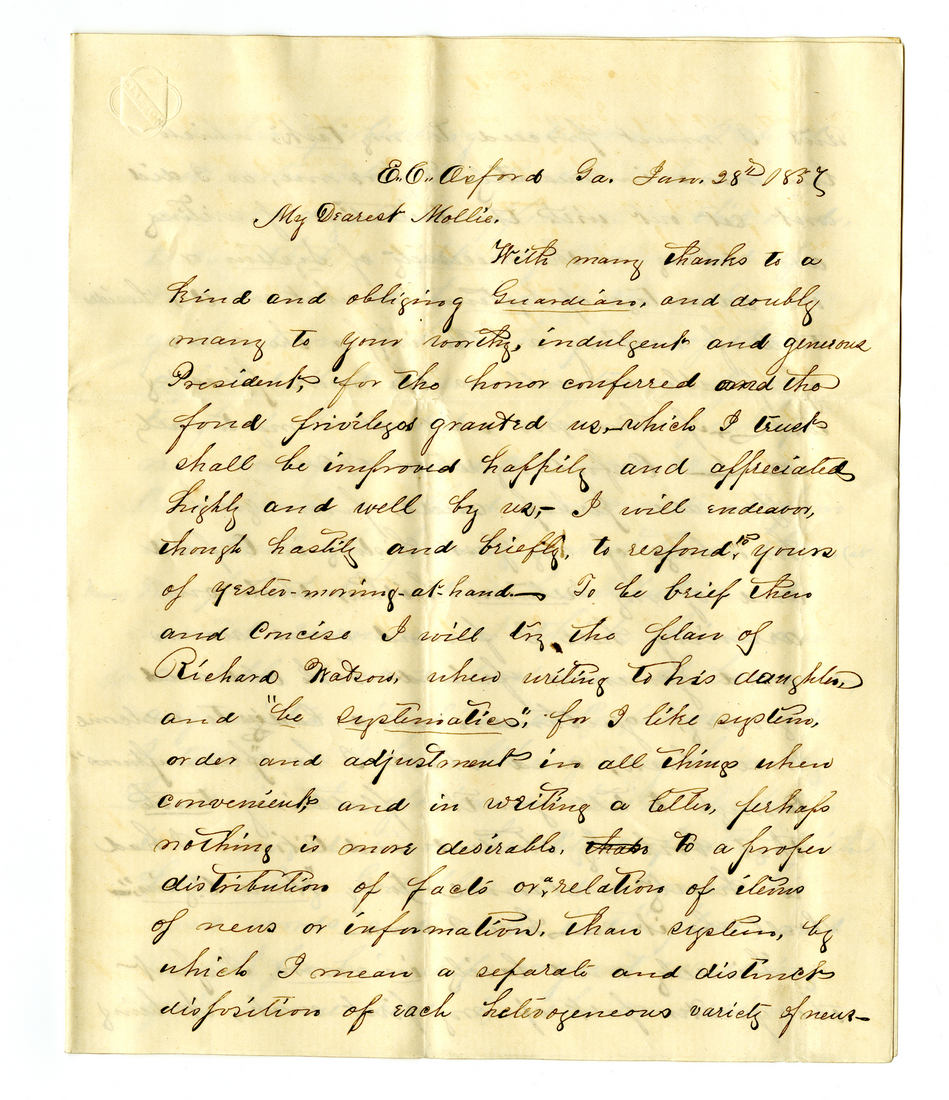 E.C. Oxford Ga. Jan. 28th 1857
My Dearest Mollie.
With many thanks to a
kind and obliging Guardian, and doubly
many to your worthy, indulgent and generous
President, for the honor conferred and the
fond privileges granted us,—which I trust
shall be improved happily and appreciated
highly and well by us,— I will endeavor,
though hastily and briefly, to respond, to yours
of yester-morning-at-hand.— To be brief then
and concise I will try the plan of
Richard Watson, when writing to his daughter,
and "be systematics", for I like system,
order and adjustment in all things when
convenient, and in writing a letter, perhaps
nothing is more desirable, than to a proper
distribution of facts or a relation of items
of news or information, than system, by
which I mean a separate and distinct
disposition of each heterogeneous variety of news—